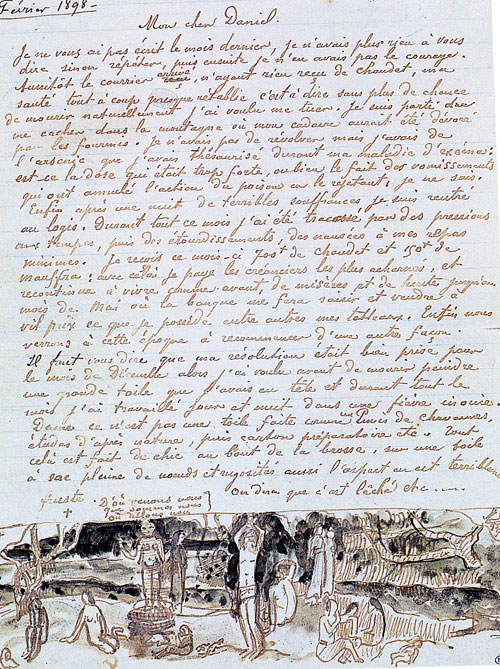 Février 1898-
Mon cher Daniel.
Je ne vous ai pas écrit le mois dernier, je n'avais plus rien à vous
dire sinon répéter, puis ensuite je n'en avais pas le courage.
Aussitôt le courrier arrivé, n'ayant rien reçu de chaudet, ma
santé tout à coup presque rétablie c'est à dire sans plus de chance
de mourir naturellement j'ai voulu me tuer. Je suis parti
me cacher dans la montagne où mon cadavre aurait été dévoré
par les fourmis. Je n'avais pas de revolver mais j'avais de
l'arsenic que j'avais thésaurisé durant ma maladie d'exéma:
est ce la dose qui était trop forte, ou bien le fait des vomissements
qui ont annulé l'action du poison en le rejetant, je ne sais.
Enfin après une nuit de terribles souffrances, je suis rentré
au logis. Durant tout ce mois j'ai été tracassé par des pressions
aux tempes, puis des étourdissements, des nausées à mes repas
minimes. Je reçois ce mois-ci 700f de chaudet et 150f de
Mauffra: avec cela je paye les créanciers les plus acharnés, et
recontinue à vivre comme avant de misères et de honte jusqu'au
mois de Mai où la banque me fera saisir et vendre à
vil prix ce que je possède entre autres mes tableaux. Enfin nous
verrons à cette époque à recommencer d'une autre façon.
Il faut vous dire que ma résolution était bien prise pour
le mois de Décembre alors j'ai voulu avant de mourir peindre
une grande toile que j'avais en tête et durant tout le
mois j'ai travaillé jour et nuit dans une fièvre inouïe.
Dame ce n'est pas une toile faite comme un Puvis de chavannes,
études d'après nature, puis carton préparatoire etc. Tout
celà est fait de chic au bout de la brosse, sur une toile
à sac pleine de nœuds et rugosités aussi l'aspect en est terriblem
On dira que c'est lâché etc....
D'où venons nous
que sommes nous
où allons nous